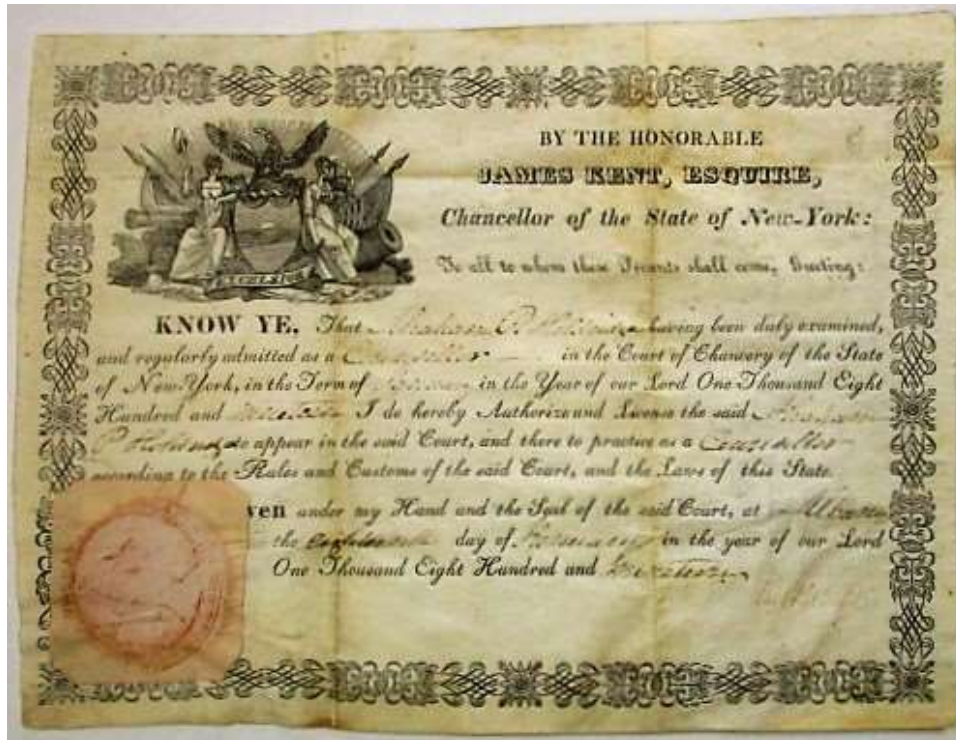 BY THE HONORABLE
JAMES KENT, ESQUIRE,
Chancellor of the State of New-York:
To all to whom these Presents shall come, Greeting:
EXCELSIOR
KNOW YE, That Abraham P. having been duly examined,
and regularly admitted as a Counsellor in the Court of Chancery of the State
of New-York, in the Term of in the Year of our Lord One Thousand Eight
Hundred and I do hereby Authorize and License the said Abraham
P. to appear in the said Court, and there to practice as a Counsellor
according to the Rules and Customs of the said Court, and the Laws of this State.
ven under my Hand and the Seal of the said Court, at Albany
the day of in the year of our Lord
One Thousand Eight Hundred and